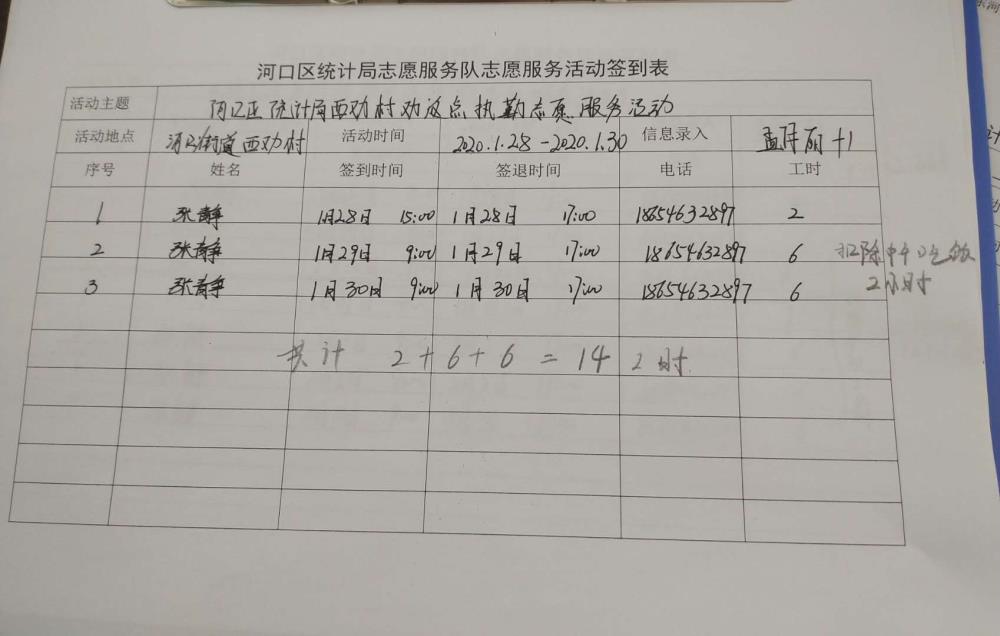 河口区统计局志愿服务队志愿服务活动签到表
活动主题 河口区统计局西劝村劝返点执勤志愿服务活动
活动地点 河口街道西劝村 活动时间 2020.1.28-2020.1.30 信息录入 +1
序号 姓名 签到时间 签退时间 电话 工时
1 张静 1月28日 15:00 1月28日 17:00 18654632897 2
2 张静 1月29日 9:00 1月29日 17:00 18654632897 6 扣除中午吃饭
3 张静 1月30日 9:00 1月30日 17:00 18654632897 6 2小时
共计 2+6+6=14 工时